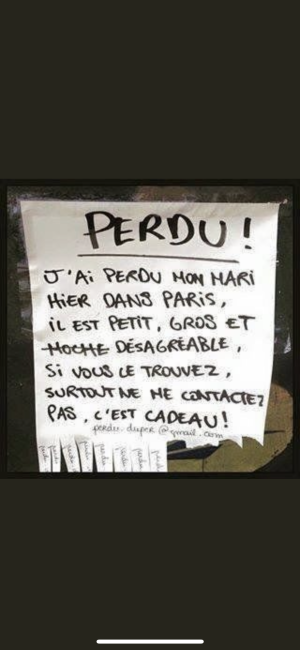 PERDU !
J'Ai PERDU MON MARi
HiER DANS PARiS,
iL EST PETiT, GROS ET
MOCHE DÉSAGRÉABLE,
Si VOUS LE TROUVEZ,
SURTOUT NE ME CONTACTEZ
PAS, C'EST CADEAU !
perdu.duper@gmail.com
perdu
perdu
perdu
perdu
perdu
perdu
perdu